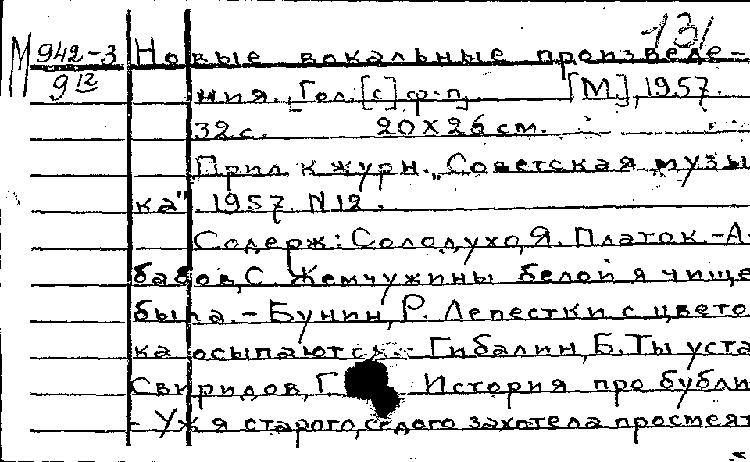 131
М 942-3 Новые вокальные произведе-
9 12 ния. [Гол. [с] ф-п] [М.], 1957.
32 с. 20x26 см.
Прил. к журн. "Советская музы
ка". 1957 N 12.
Содерж: Солодухо, Я. Платок. - А.
бабов, С. Жемчужины белой я чище
была. - Бунин, Р. Лепестки с цвето
ка осыпаются. - Гибалин, Б. Ты уста
Свиридов, Г. История про бубли
- Уж я старого, седого захотела просмеят